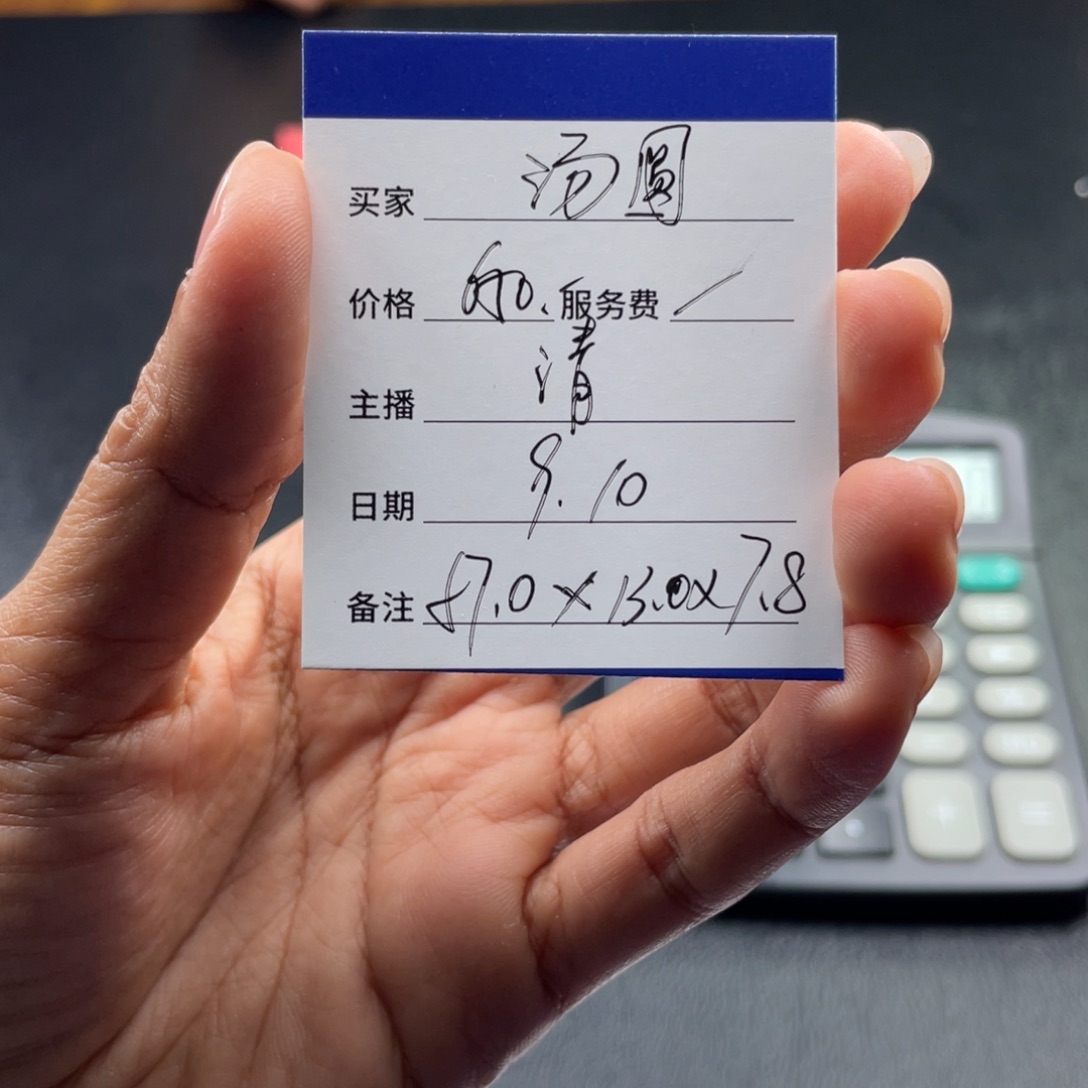 买家 汤圆
价格 服务费 /
主播 清
日期 9.10
备注 57.0×13.0×7.8